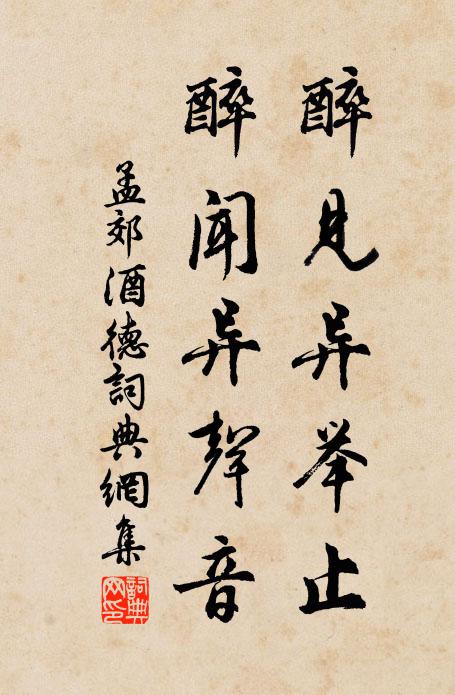 醉見异举止
醉闻异聲音
孟郊酒德詞典網集
詞典网印